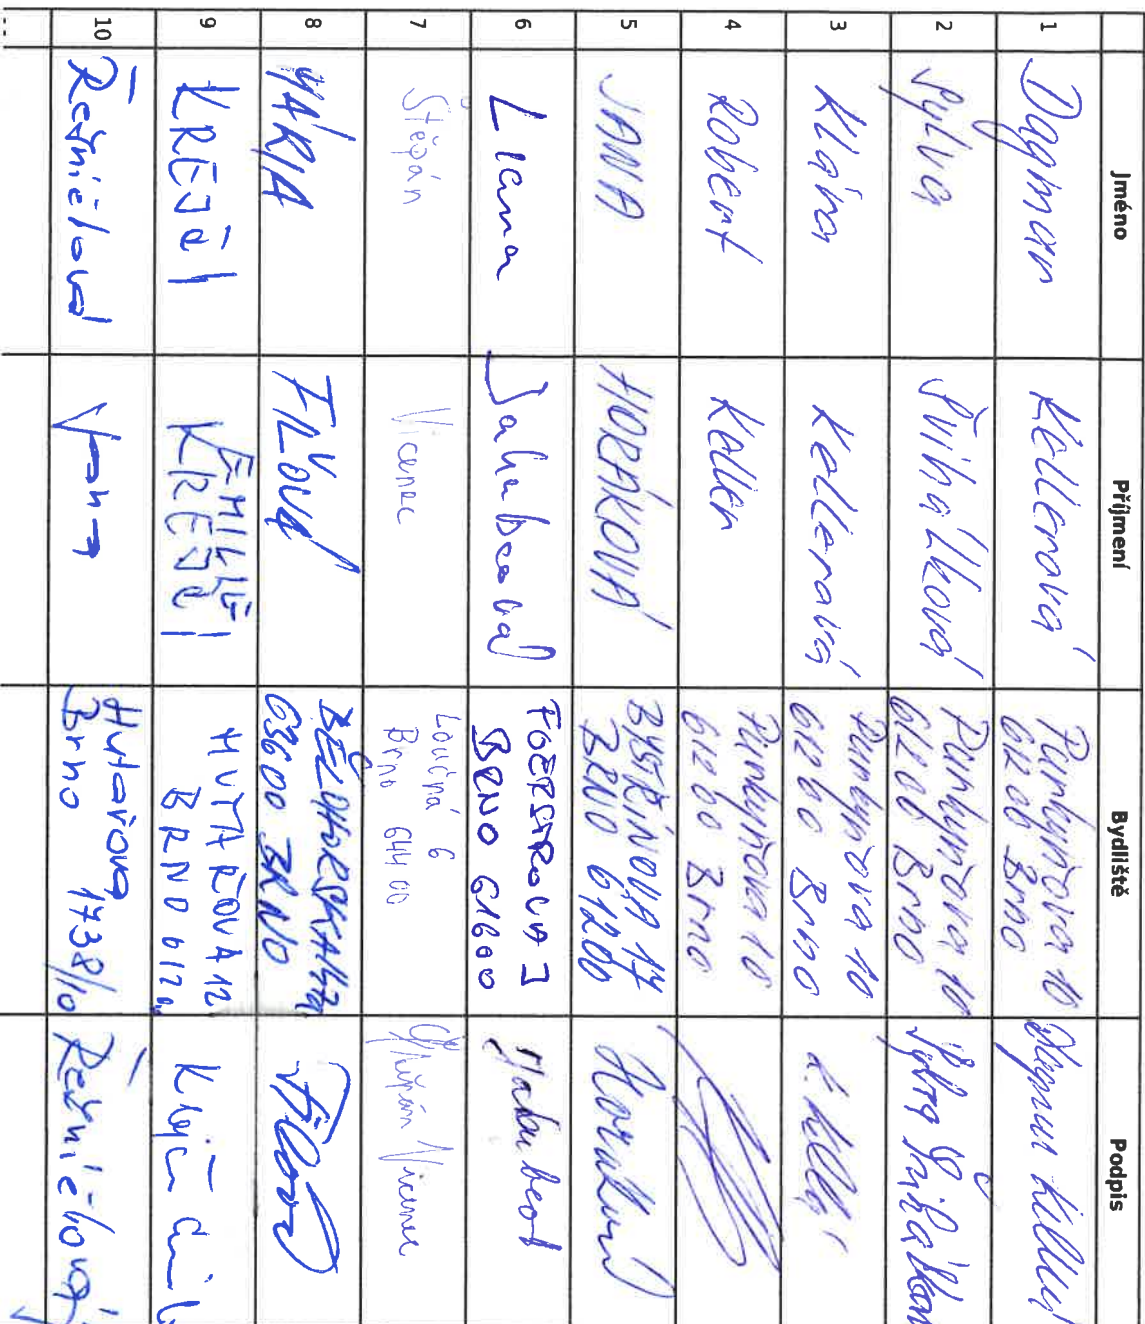 Jméno Příjmení Bydliště Podpis
1 Dagmar Kellerová Purkyňova 10
612 00 Brno
2 Sylva Švihálková Purkyňova 10
612 00 Brno Sylva Švihálková
3 Klára Kellerová Purkyňova 10
612 00 Brno K. Keller
4 Robert Keller Purkyňova 10
612 00 Brno
5 JANA HORÁKOVÁ BYSTŘINOVA 14
BRNO 61200 Horáková
6 Liana Jakubcová FOERSTROVA
BRNO 61600
7 Štěpán Vicenec Loučná 6
Brno 644 00 Štěpán Vicenec
8 MÁRIA FILOVÁ BĚLOHORSKÁ
63600 BRNO Filová
9 KREJČÍ EMILIE
KREJČÍ HUTAŘOVA 12
BRNO 612
10 Řezníčková Jana Hutařova
Brno 1738/10 Řezníčková